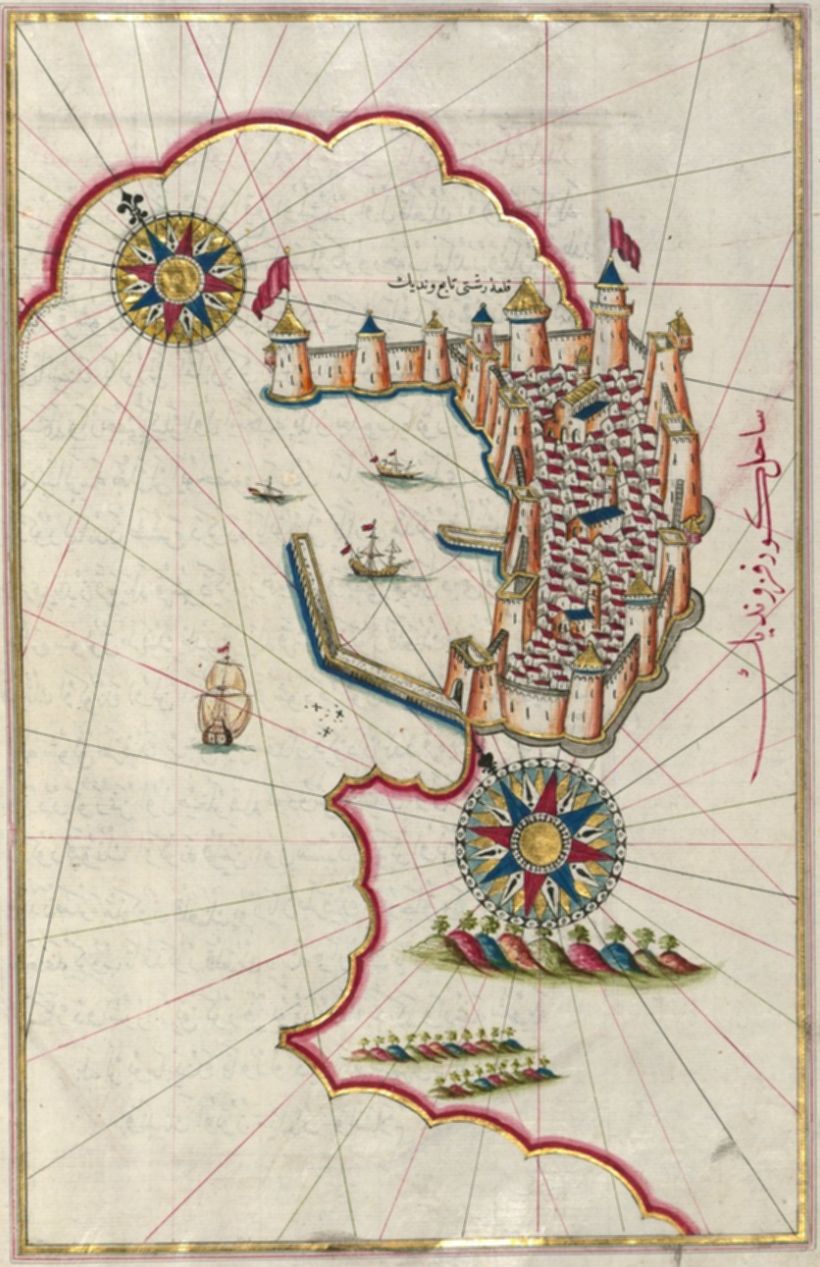 قلعهٔ رشتى تابع ونديك
ساحل كورفز ونديك